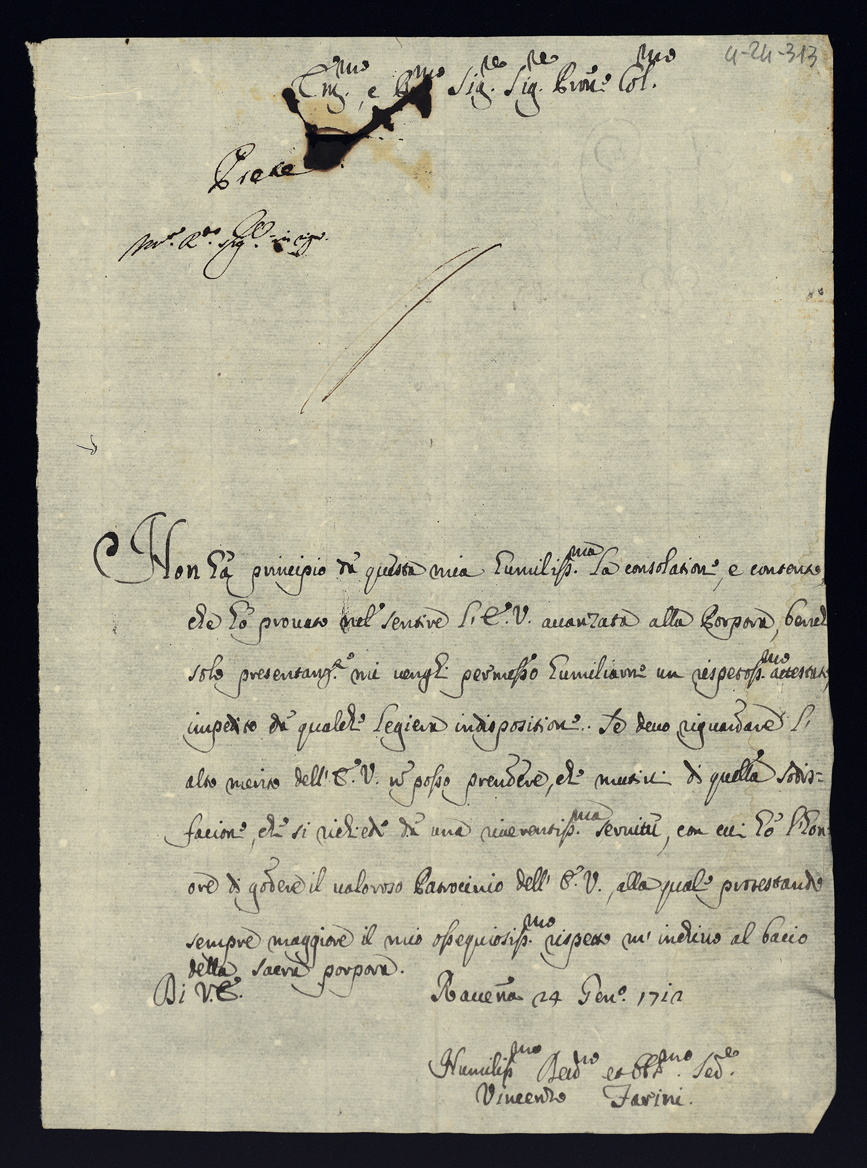 4-24-313
Em.mo, e R.mo Sig.re Sig.re Pron.e Col.mo
M.to R.do Sig.
Non há principio da questa mia humiliss.ma la consolatione, e contento,
che hò provato nel' sentire l'E.V. avanzata alla Porpora, bench
solo presentem.te mi venghi permesso humiliarne un rispetoss.mo attestato,
impedito da qualche legiera indispositione. Se devo riguardare l'
alto merito dell' E.V. nō posso prendere, che motivi di quella sodis=
facione, che si richiede da una riverentiss.ma servitù, con cui hò l'hon
ore di godere il valoroso Patrocinio dell' E.V., alla quale protestando
sempre maggiore il mio ossequiosiss.mo rispetto m' inchino al bacio
della sacra porpora.
Di V.E. Ravenna 24 Gen.o 1712
Humiliss.mo Dev.mo et Obl.mo Ser.e
Vincenzo Farini.